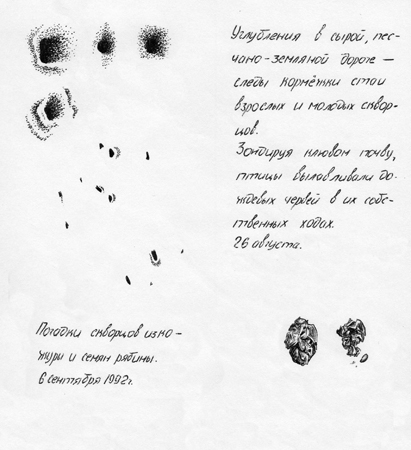 Углубления в сырой, пес-
чано-земляной дороге —
следы кормёжки стаи
взрослых и молодых сквор-
цов.
Зондируя клювом почву,
птицы вылавливали до-
ждевых червей в их собс-
твенных ходах.
26 августа.
Погадки скворцов из ко-
журы и семян рябины.
6 сентября 1992г.